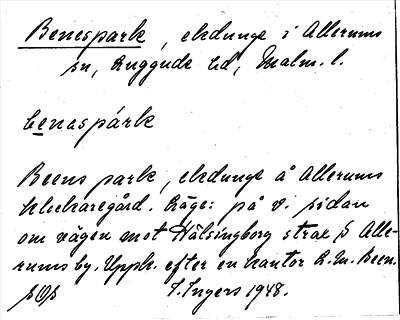 Benespark, ekdunge i Allerums
sn, Luggude hd, Malm. l.
benaspárk
Beens park, ekdunge å Allerums
klockaregård. Läge: på v. sidan
om vägen mot Hälsingborg strax S Alle-
rums by. Uppk. efter en kantor R. M. Been.
I. Ingers 1948.